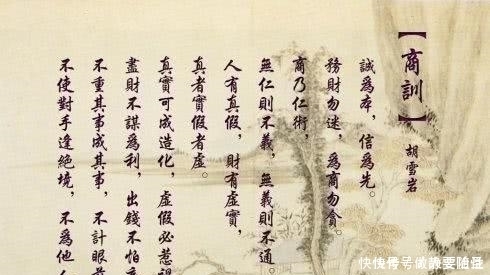 【商訓】
胡雪岩
誠爲本,信爲先。
務財勿迷,爲商勿貪。
商乃仁術,
無仁則不義,無義則不通。
人有真假,財有虛實,
真者實假者虛。
真實可成造化,虛假必惹
盡財不謀爲利,出錢不怕
不重其事成其事,不計眼
不使對手逢絕境,不爲他人